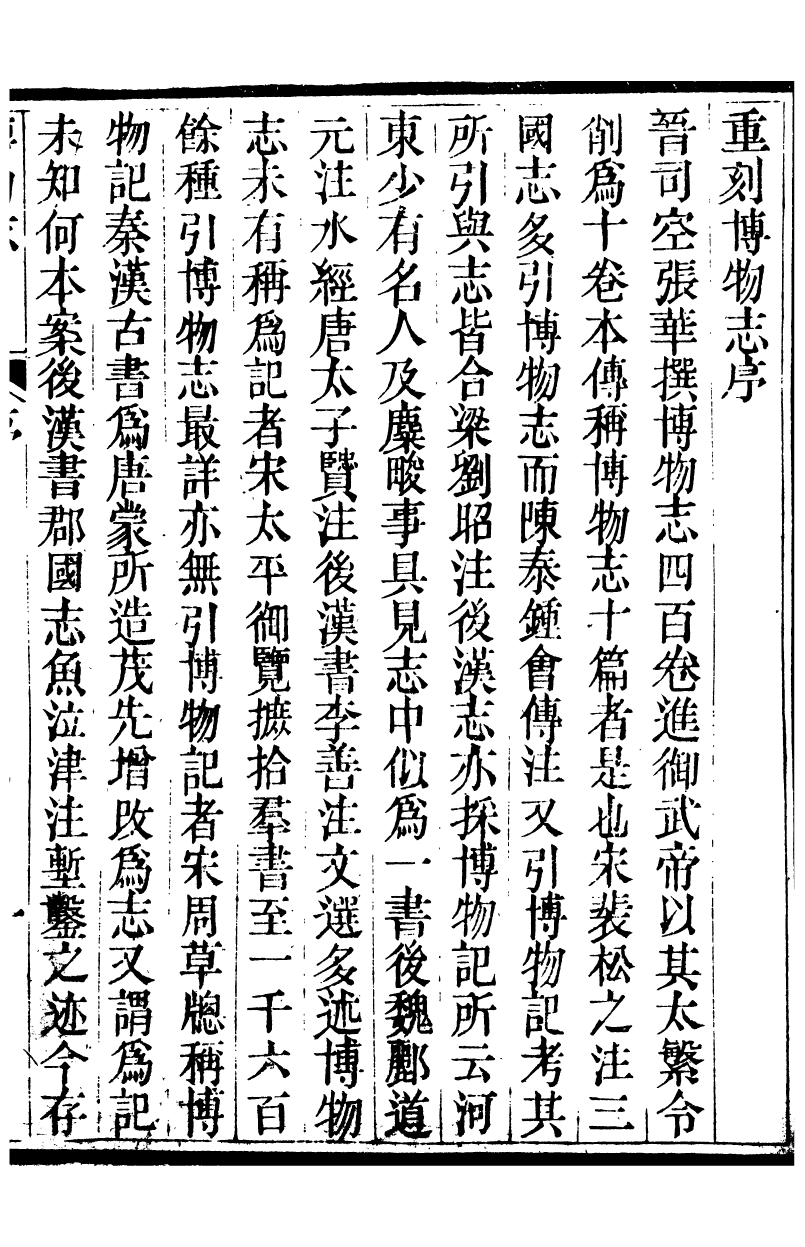 重刻博物志序
晉司空張華撰博物志四百卷進御武帝以其太繁令
削爲十卷本傳稱博物志十篇者是也宋裴松之注三
國志多引博物志而陳泰鍾會傳注又引博物記考其
所引與志皆合梁劉昭注後漢志亦採博物記所云河
東少有名人及麋畯事具見志中似爲一書後魏酈道
元注水經唐太子賢注後漢書李善注文選多述博物
志未有稱爲記者宋太平御覽摭拾羣書至一千六百
餘種引博物志最詳亦無引博物記者宋周草牕稱博
物記秦漢古書爲唐蒙所造茂先增改爲志又謂爲記
未知何本案後漢書郡國志魚泣津注塹鑿之迹今存
序
一